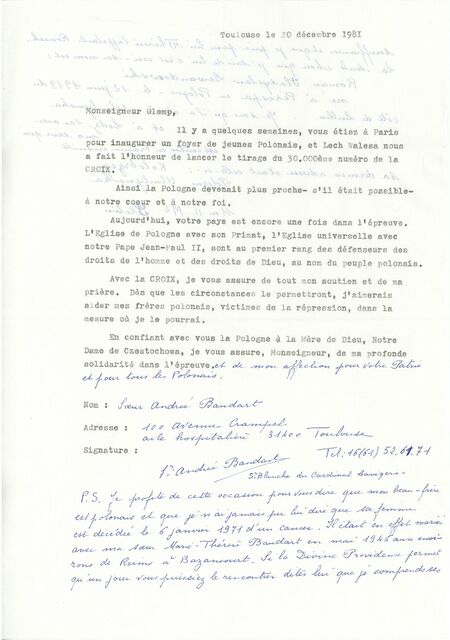 Toulouse le 20 décembre 1981
Monseigneur Glemp,
Il y a quelques semaines, vous étiez à Paris
pour inaugurer un foyer de jeunes Polonais, et Lech Walesa nous
a fait l'honneur de lancer le tirage du 30.000ème numéro de la
CROIX.
Ainsi la Pologne devenait plus proche- s'il était possible-
à notre coeur et à notre foi.
Aujourd'hui, votre pays est encore une fois dans l'épreuve.
L'Eglise de Pologne avec son Primat, l'Eglise universelle avec
notre Pape Jean-Paul II, sont au premier rang des défenseurs des
droits de l'homme et des droits de Dieu, au nom du peuple polonais.
Avec la CROIX, je vous assure de tout mon soutien et de ma
prière. Dès que les circonstances le permettront, j'aimerais
aider mes frères polonais, victimes de la répression, dans la
mesure où je le pourrai.
En confiant avec vous la Pologne à la Mère de Dieu, Notre
Dame de Czestochowa, je vous assure, Monseigneur, de ma profonde
solidarité dans l'épreuve, et de mon affection pour votre Patrie
et pour tous les Polonais.
Nom : Sœur Andrée Baudart
Adresse : 100 avenue Crampel
aile hospitalière 31400 Toulouse
Signature : Tel: 16(61) 52.61.71
Sr Andrée Baudart
Sr Blanche du Cardinal Lavigerie
P.S. Je profite de cette occasion pour vous dire que mon beau-frère
est polonais et que je n'ai jamais pu lui dire que sa femme
est décédée le 6 janvier 1971 d'un cancer. Il était en effet marié
avec ma sœur Marie-Thérèse Baudart en mai 1940 aux envi
rons de Reims à Bazancourt. Si la Divine Providence permet
qu'un jour vous puissiez le rencontrer dites lui que je comprends ses